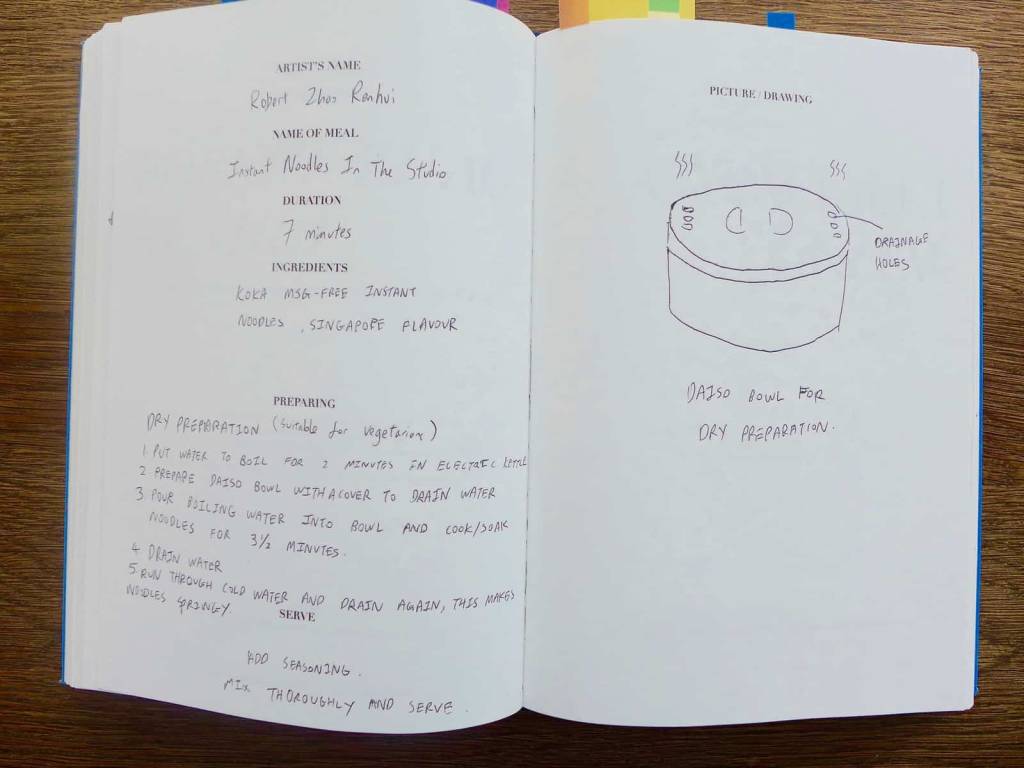 ARTIST'S NAME
Robert Zhao Renhui
NAME OF MEAL
Instant Noodles In The Studio
DURATION
7 minutes
INGREDIENTS
KOKA MSG-FREE INSTANT
NOODLES, SINGAPORE FLAVOUR
PREPARING
DRY PREPARATION (suitable for vegetarians)
1. PUT WATER TO BOIL FOR 2 MINUTES IN ELECTRIC KETTLE
2. PREPARE DAISO BOWL WITH A COVER TO DRAIN WATER
3. POUR BOILING WATER INTO BOWL AND COOK/SOAK
NOODLES FOR 3 1/2 MINUTES.
4. DRAIN WATER
5. RUN THROUGH COLD WATER AND DRAIN AGAIN, THIS MAKES
NOODLES SPRINGY.
SERVE
ADD SEASONING.
MIX THOROUGHLY AND SERVE.
PICTURE / DRAWING
DRAINAGE
HOLES
DAISO BOWL FOR
DRY PREPARATION.